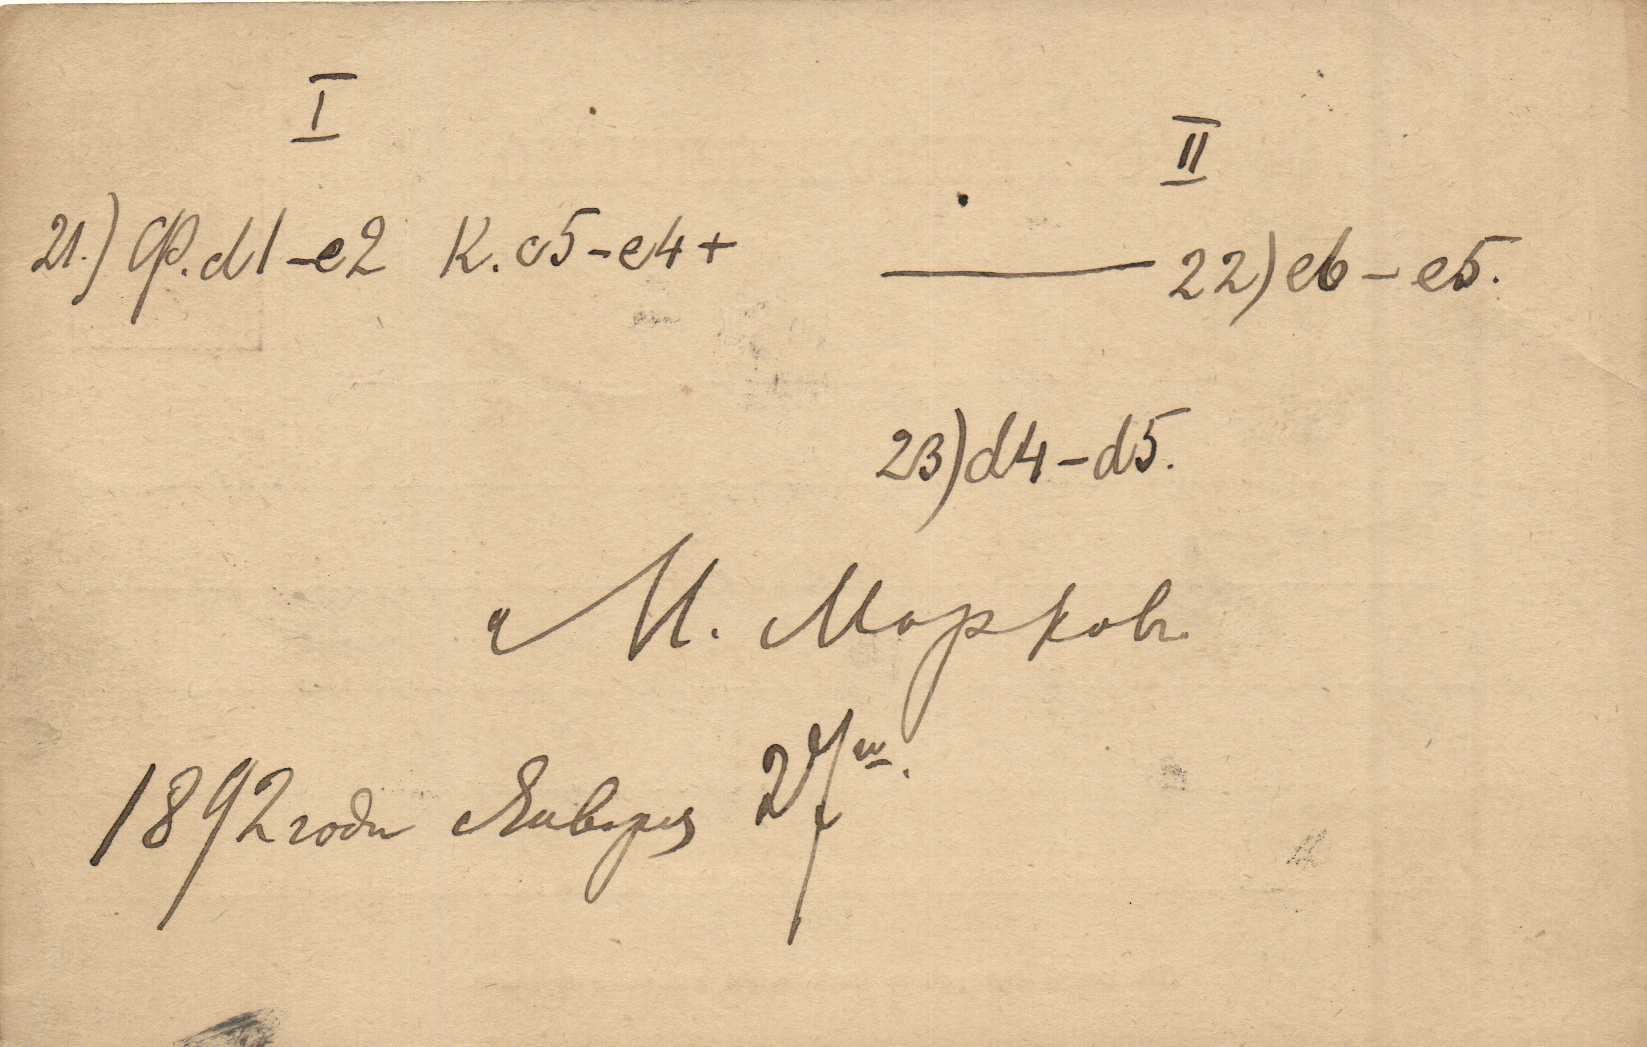 I
II
21.) Ф. d1 – e2 К. c5 – e4 +
——— 22) e6 – e5.
23) d4 – d5.
М. Марковъ.
1892 года Января 27го.